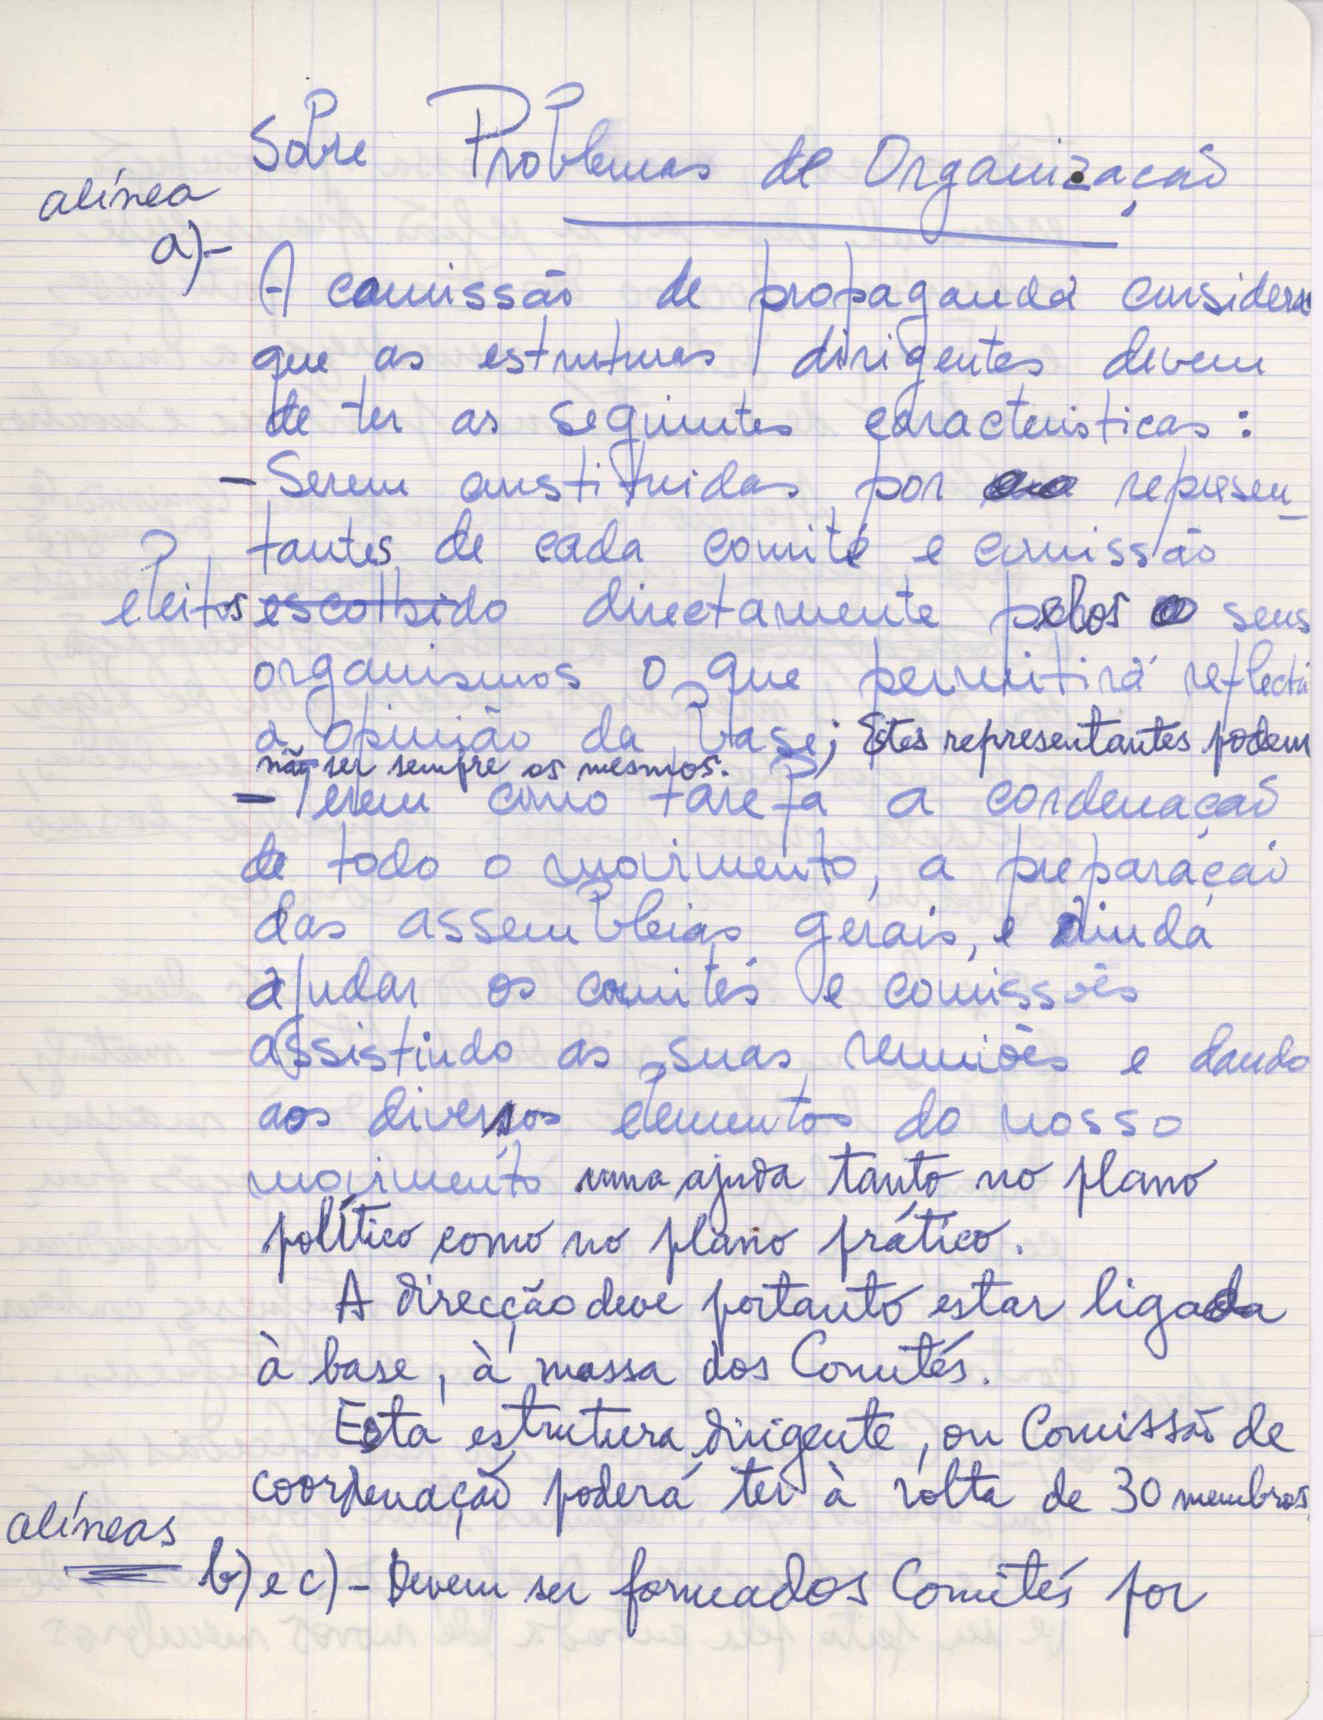 Sobre Problemas de Organização
alínea
a)-
A comissão de propaganda considera
que as estruturas dirigentes devem
de ter as seguintes caracteristicas:
- Serem constituidas por represen-
tantes de cada comité e comissão
eleitos escolhido directamente pelos seus
organismos o que permitirá reflectir
a opinião da base; Estes representantes podem
não ser sempre os mesmos.
- Terem como tarefa a cordenação
de todo o movimento, a preparação
das assembleias gerais, e ainda
ajudar os comités e comissões
assistindo as suas reuniões e dando
aos diversos elementos do nosso
movimento uma ajuda tanto no plano
político como no plano prático.
A direcção deve portanto estar ligada
à base, à massa dos Comités.
Esta estrutura dirigente, ou Comissão de
coordenação poderá ter à volta de 30 membros.
alíneas
b) e c) - Devem ser formados Comités por